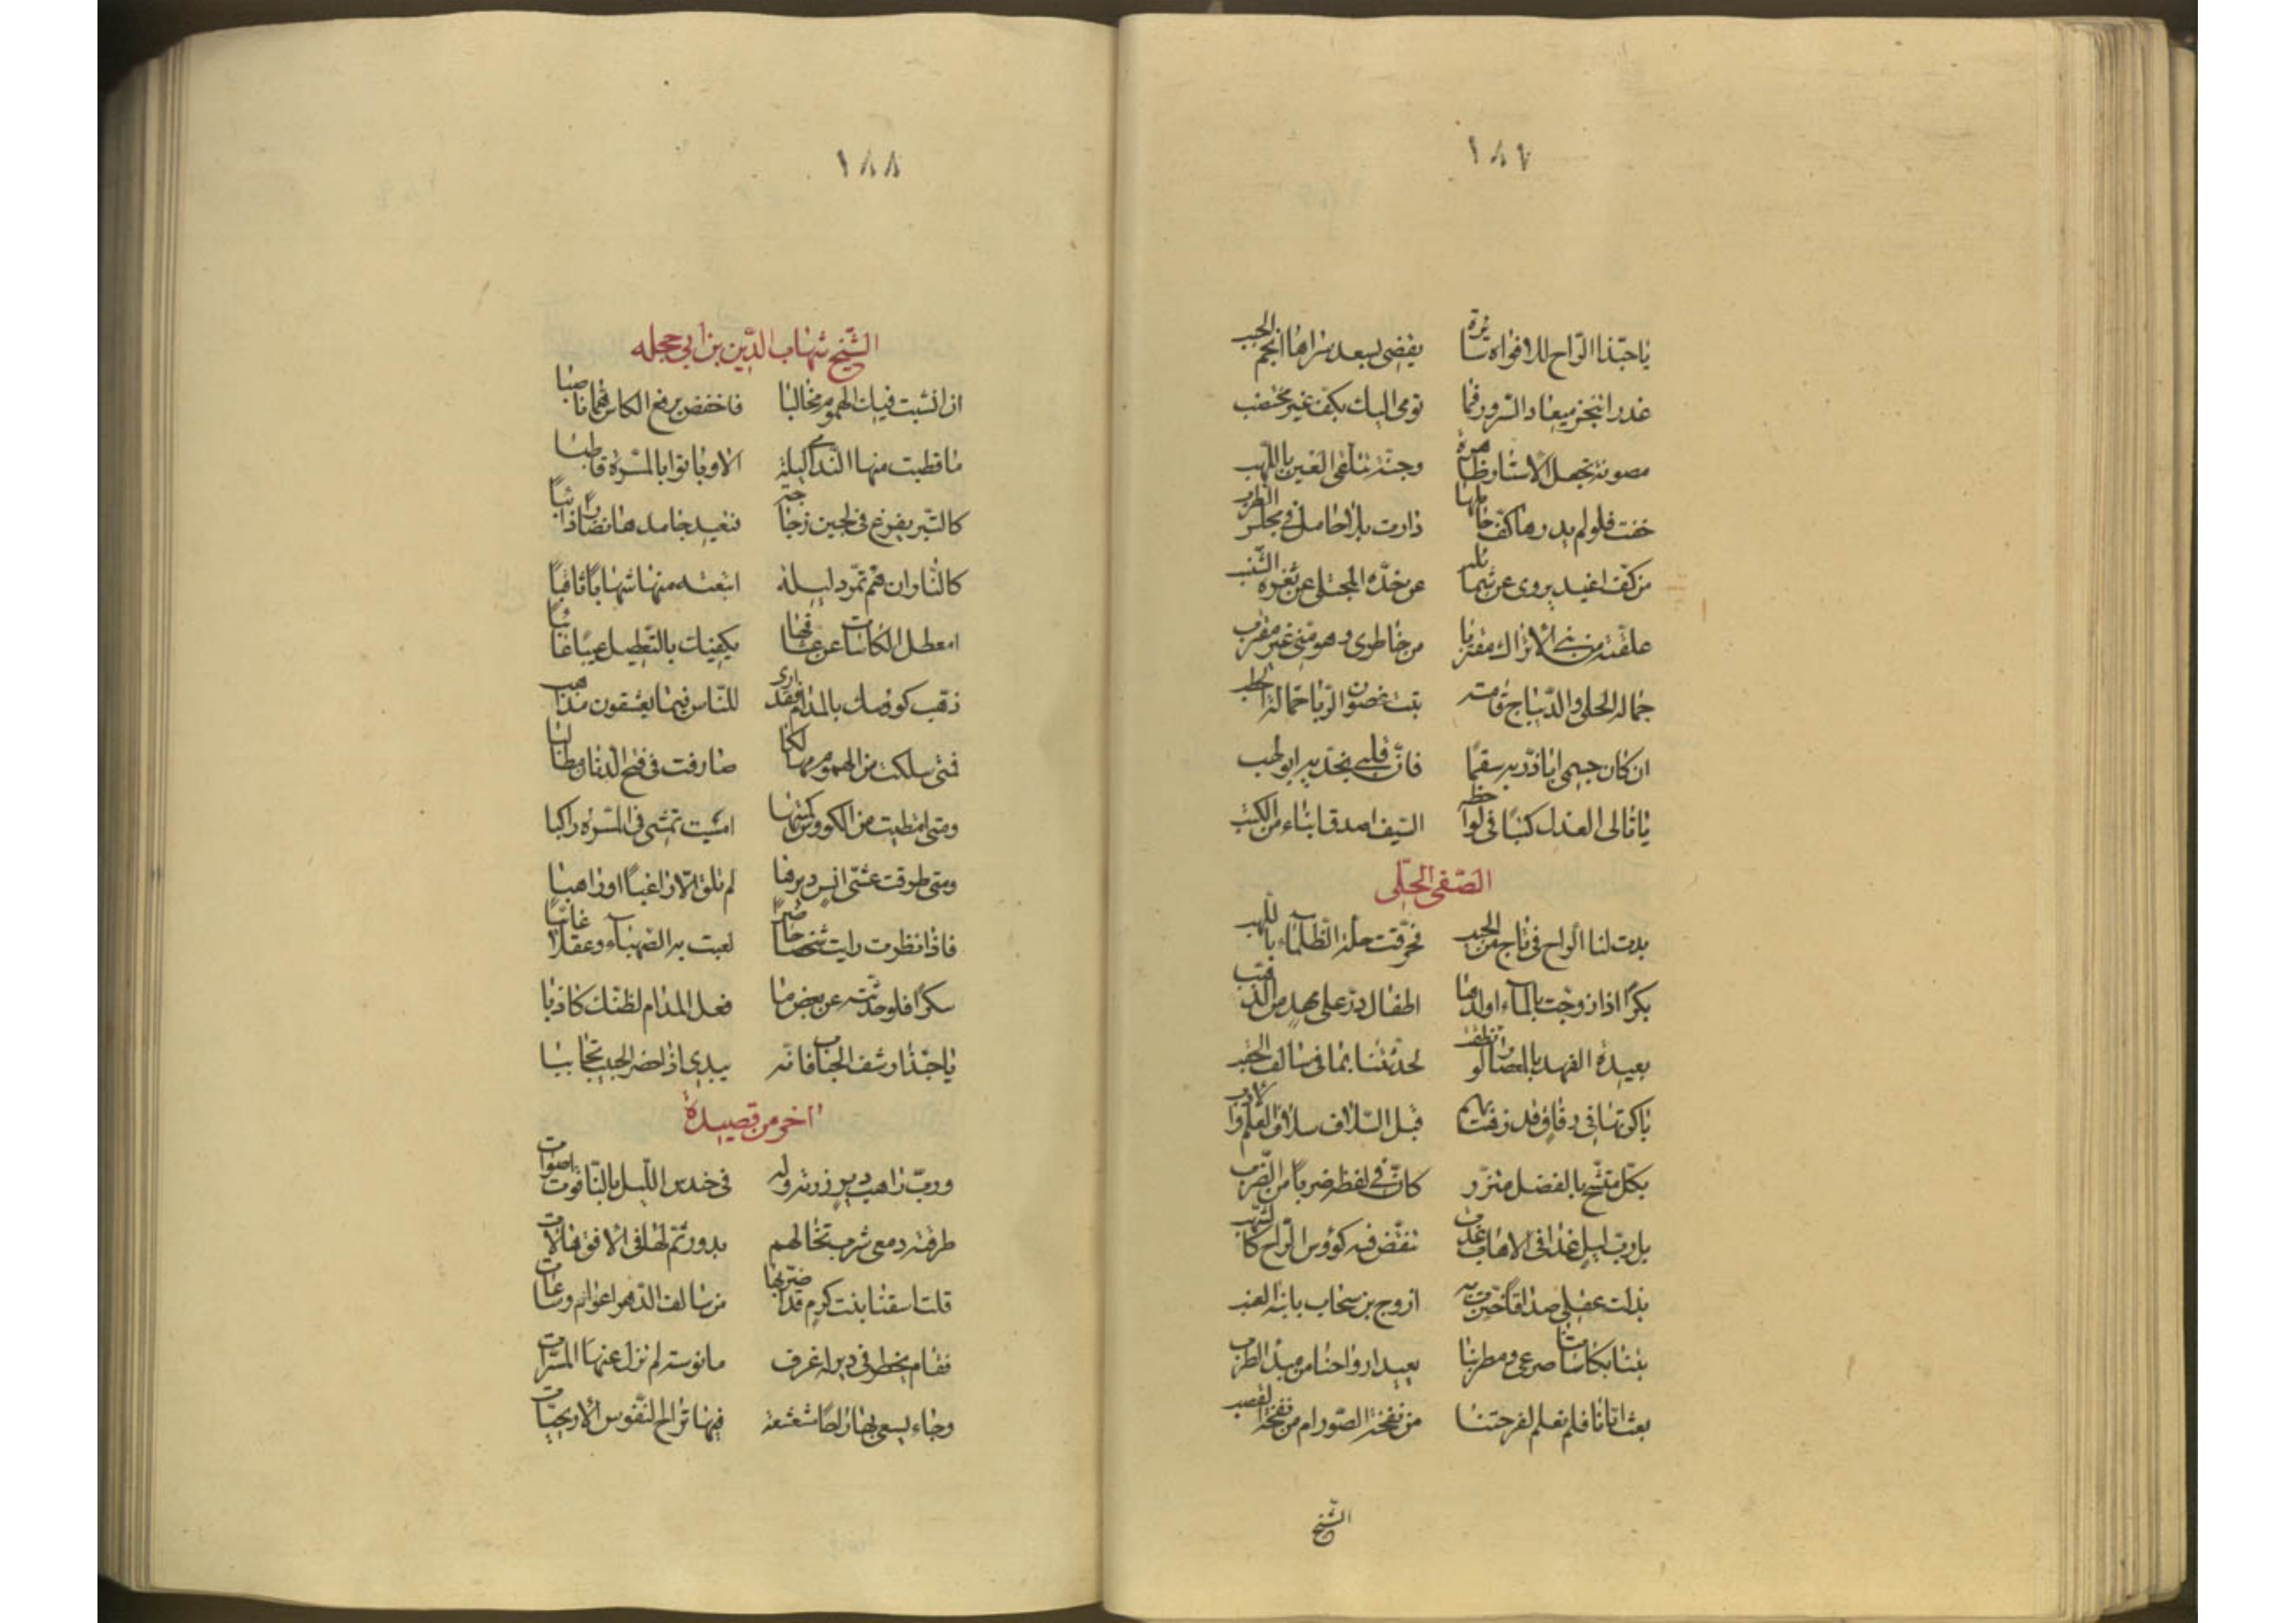 ١٨٧
يا حبّذا الرّاح للافواه سائرة يقضى بسعد سراها انجم الحبب
عذرا تنجز ميعاد السّرور فما تومى اليك بكف غير مختضب
مصونة تجعل الاستار ظاهرة وجنّة تتلقى العين باللهب
خفت فلو لم يدرها كفّ حاملها دارت بلا حامل فى مجلس الطرب
من كفّ اغيد يروى عن شمائله عن خدّه المجتلى عن ثغره الشنب
علقته من بنى الاتراك مقتربا من خاطرى وهو منّى غير مقترب
حمالة الحلى والدّيباج قامته تبت غصون الرّبا حمالة الحطب
ان كان جسمى ابا ذرّ به سقمًا فانّ قلبى بخدّيه ابو لهب
يا تالى العذل كتبًا فى لواحظه السّيف اصدق انباء من الكتب
الصّفى الحلّى
بدت لنا الرّاح فى تاج من الحبب فمزّقت حلّة الظّلماء باللهب
بكرًا اذا زوّجت بالماء اولدها اطفال درّ على مهد من الذهب
بعيدة العهد بالمعصار لو نطقت لحدّثتنا بما فى سالف الحقب
باكرتها فى رفاق قد زهت بهم قبل السّلاف سلاف العلم والادب
بكلّ متّشح بالفضل متّزر كانّ فى لفظه ضربًا من الضّرب
بل ربّ ليل غدا فى الاهاب غدت تنقضّ فيه كؤوس الرّاح كالشهب
بذلت عقلى صداقًا حين بت به ازوج بن سحاب بابنة العنب
بتنا بكاساتها صرعى ومطربنا يعيد ارواحنا من مبدء الطرب
بعث اتانا فلم نعلم لفرحتنا من نفخة الصّور ام من نفخة القصب
الشّيخ
١٨٨
الشّيخ شهاب الدّين بن ابى حجله
ان انشبت فيك الهموم مخالبا فاخفض برفع الكاس همّا ناصبا
ما قطبت منها النّدامى ليلة الا وباتوا بالمسّرة قاطبا
كالتّبر يفرغ فى لجين زجاجة فتعيد جامدها نضارًا ذائبًا
كالنّار ان همّ تمّرد ليلة اتبعته منها شهابًا ثاقبًا
امعطل الكاسات عن عشّاقها يكفيك بالتّعطيل عيبًا عائبًا
ذهّب كؤوسك بالمدام فقد ارى للنّاس فيما يعشقون مذاهب
فمتى سلكت من الهموم مهالكا صارفت فى فتح الدّنان مطالبا
ومتى امتطيت من الكووس كميتها امسيت تمشى فى المسّرة راكبا
ومتى طرقت عشّى انس ديرها لم تلق الّا راغبًا او راهبا
فاذا نظرت رايت شخصا حاضرًا لعبت به الصّهباء وعقلا غائبًا
سكرًا فلو حدّثته عن بعض ما فعل المدام لظنّك كاذبا
يا حبّذا رشف الحباب فانّه يبدى اذا حضر الحبيب حبائبا
اخر من قصيدة
وربّ راهب دير زرته وله فى حندس اللّيل بالنّاقوس اصوات
طرقته ومعى شرب تخالهم بدور تمّ لها فى الافق هالات
قلت اسقنا بنت كرم قد اضرّ بها من سالف الدّهر اعوام وساعات
فقام يخطو فى دير له غرف مانوسة لم تزل عنها المسرّات
وجاء يسعى بها راحًا مشعشعة فيها تراح النّفوس الاريحيّات